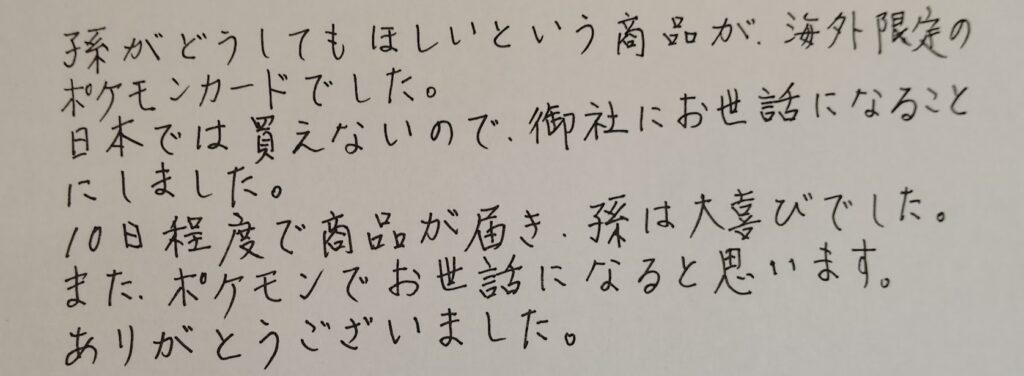 孫がどうしてもほしいという商品が、海外限定の
ポケモンカードでした。
日本では買えないので、御社にお世話になること
にしました。
10日程度で商品が届き、孫は大喜びでした。
また、ポケモンでお世話になると思います。
ありがとうございました。